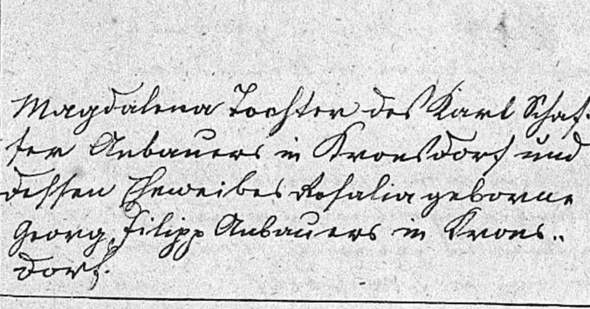 Magdalena Tochter des Karl Schaf-
fer Anbauers in Kronsdorf und
dessen Eheweibes Rosalia geborne
Georg Filipp Anbauers in Krons-
dorf.